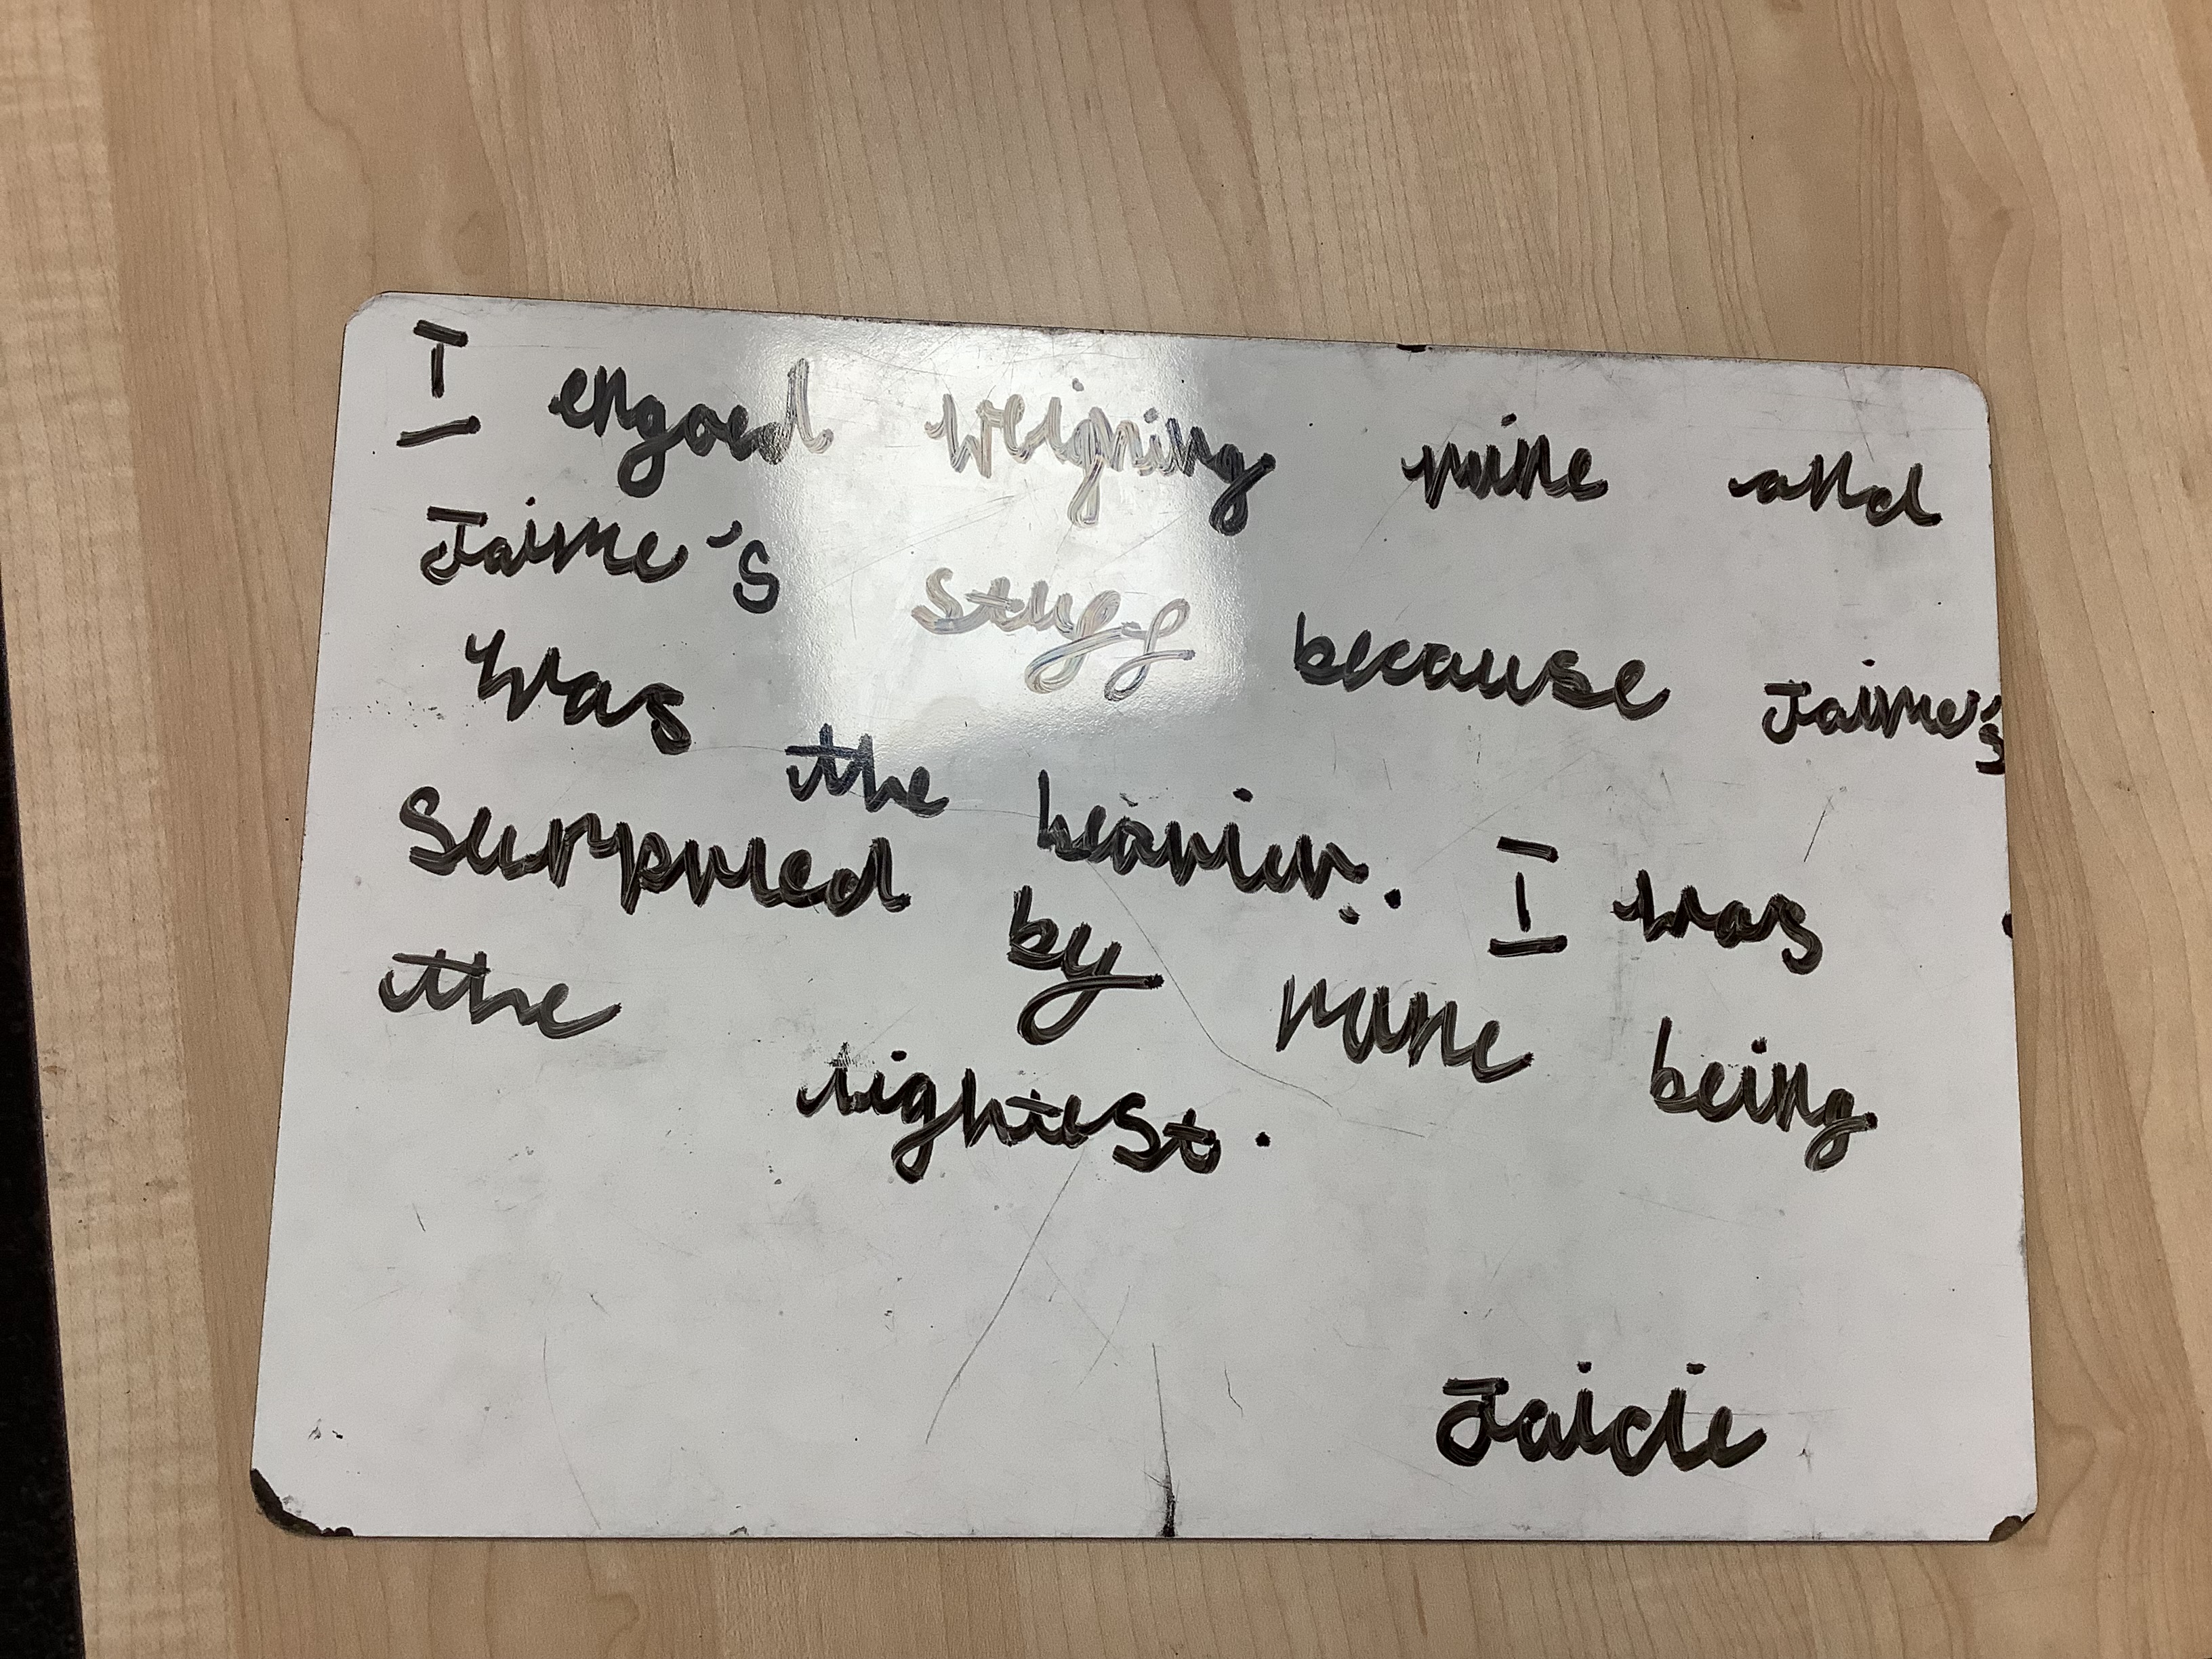 I engoed weigning mine and
Jaime's stuff because Jaime's
was the heavier. I was
surpried by mine being
the lightest.
Jaicie